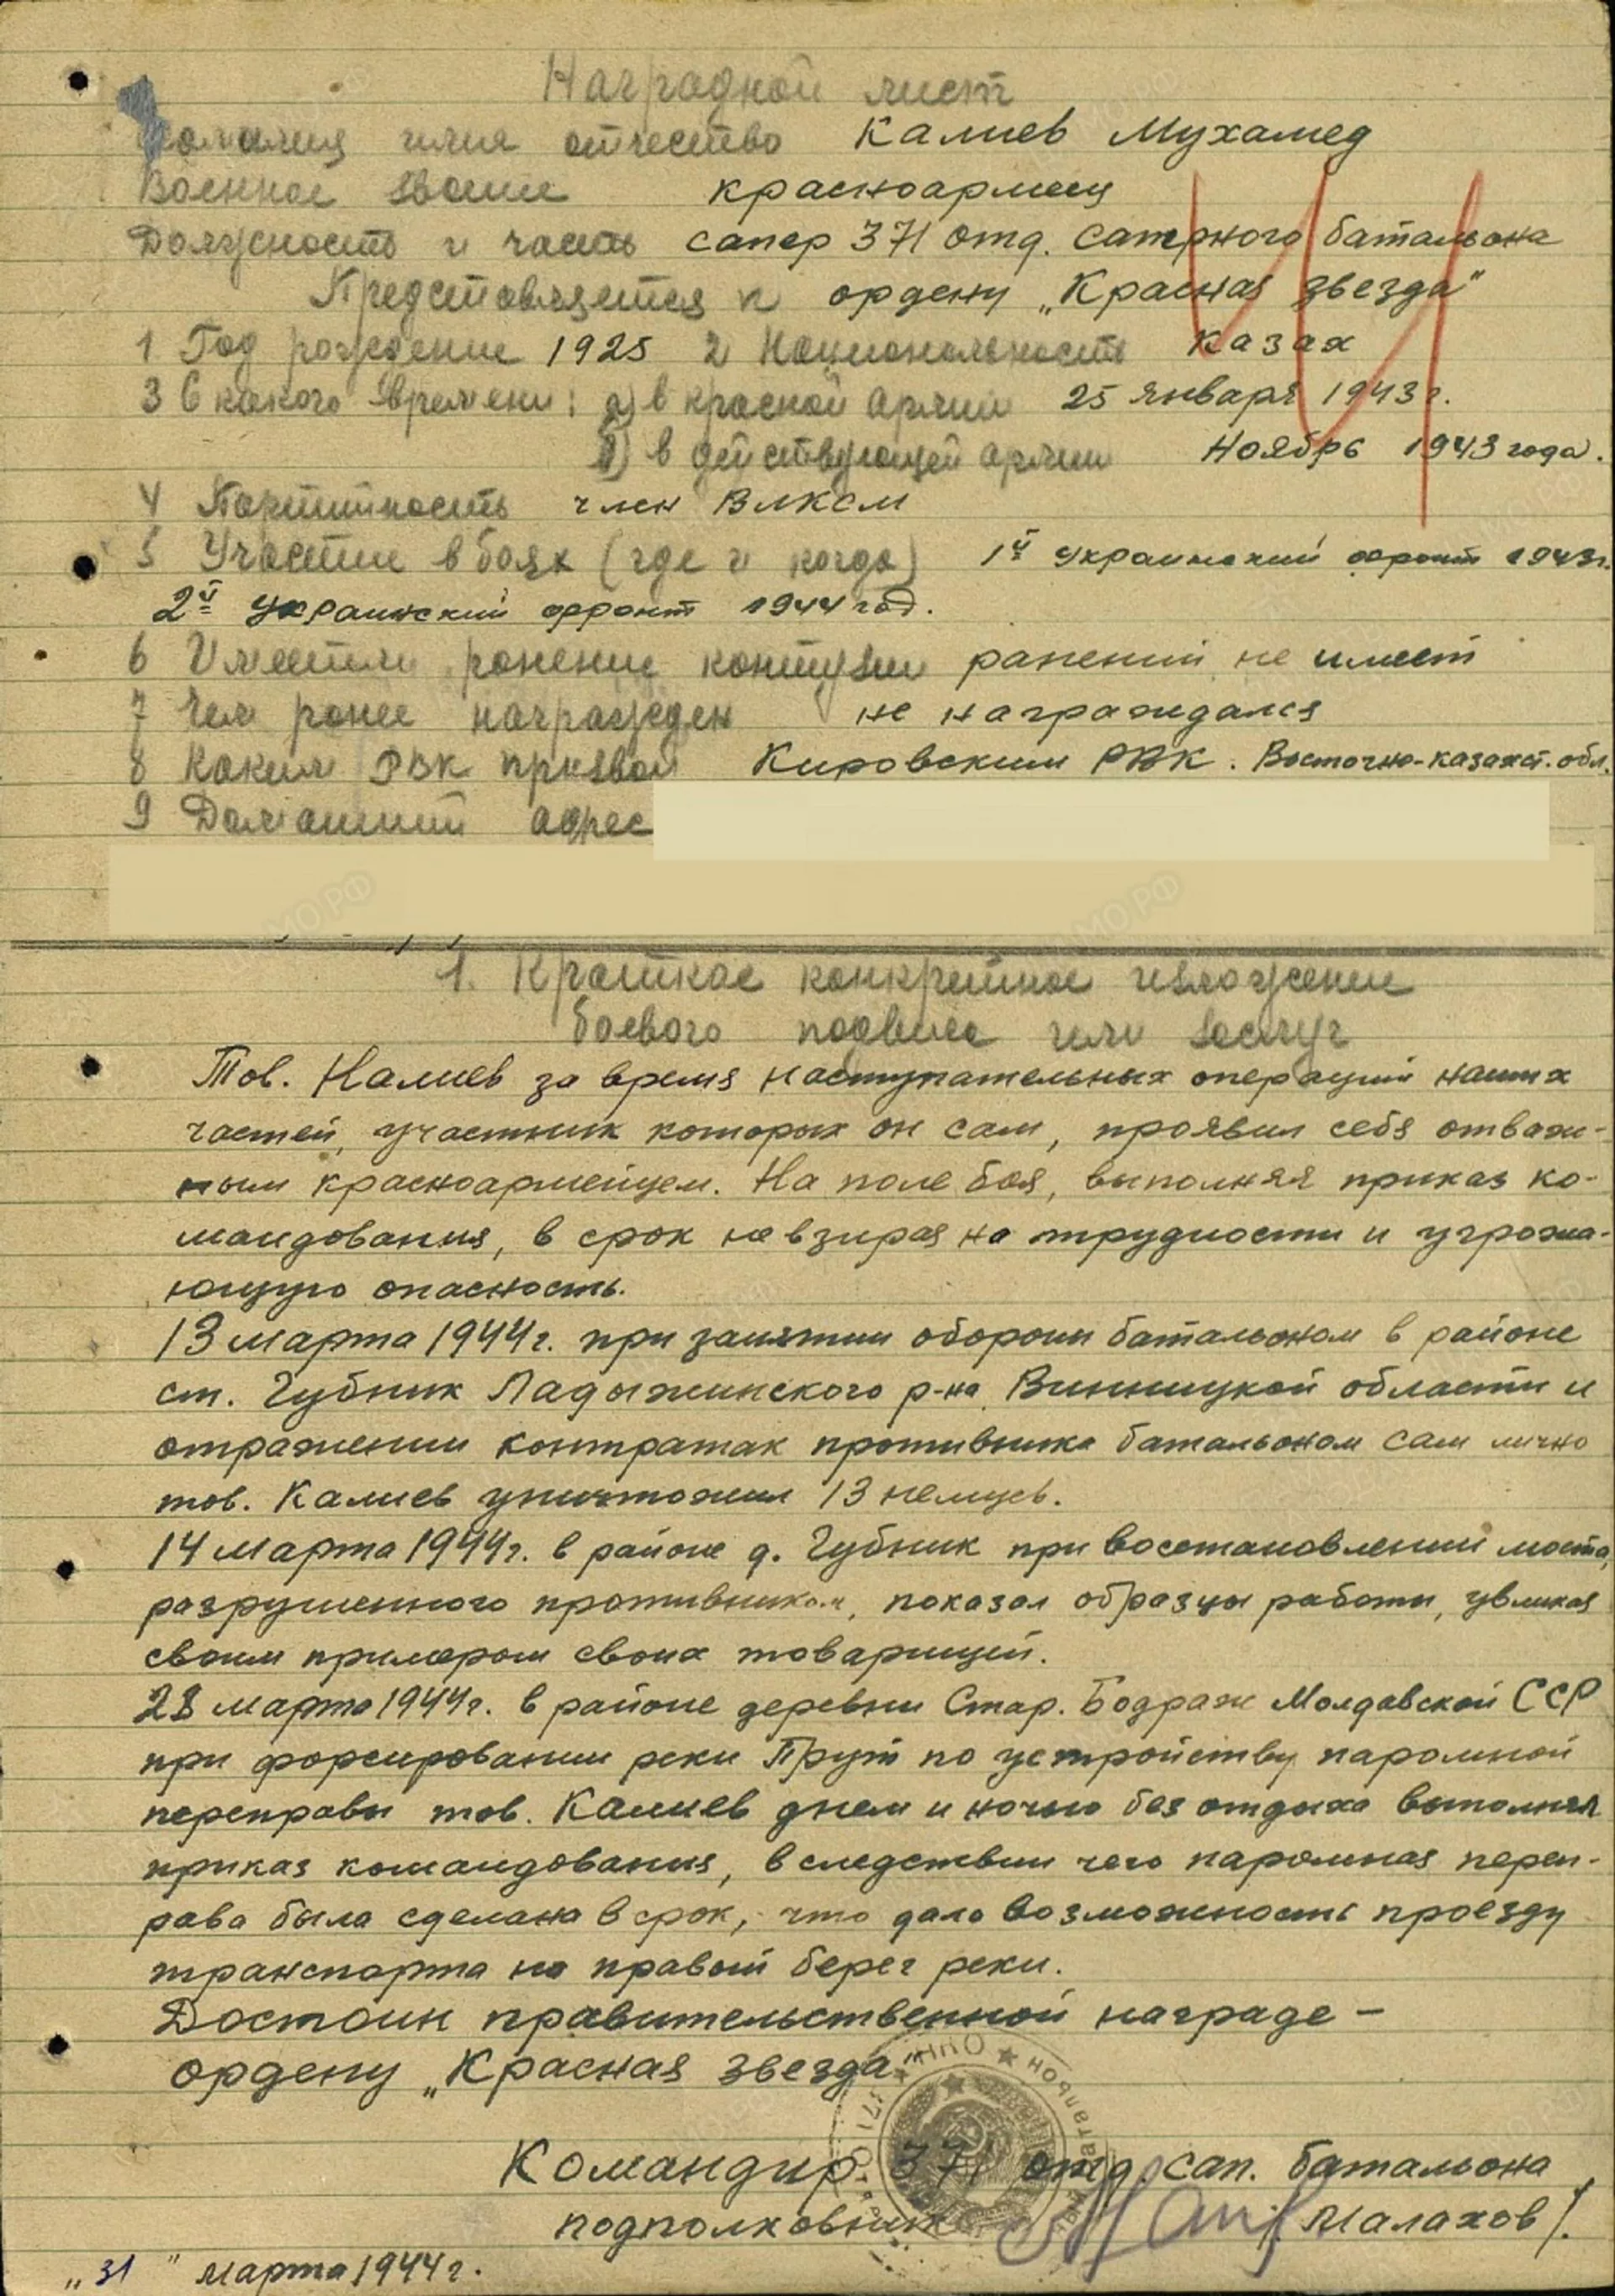 Наградной лист
Фамилия имя отчество Калиев Мухамед
Военное звание красноармеец
Должность и часть сапер 371 отд. саперного батальона
Представляется к ордену „Красная звезда"
1 Год рождение 1925 2 Национальность казах
3 С какого времени: а) в красной армии 25 января 1943 г.
б) в действующей армии Ноябрь 1943 года.
4 Партийность член ВЛКСМ
5 Участие в боях (где и когда) 1й Украинский фронт 1943г.
2й Украинский фронт 1944 год.
6 Имеет ли ранение контузии ранений не имеет
7 Чем ранее награжден не награждался
8 Каким РВК призван Кировским РВК. Восточно-казахст. обл.
9 Домашний адрес
1. Краткое конкретное изложение
боевого подвига или заслуг
Тов. Калиев за время наступательных операций наших
частей, участник которых он сам, проявил себя отваж-
ным красноармейцем. На поле боя, выполняя приказ ко-
мандования, в срок не взирая на трудности и угрожа-
ющую опасность.
13 марта 1944г. при занятии обороны батальоном в районе
ст. Губник Ладыжинского р-на Винницкой области и
отражении контратак противника батальоном сам лично
тов. Калиев уничтожил 13 немцев.
14 марта 1944г. в районе д. Губник при восстановлении моста,
разрушенного противником, показал образцы работы, увликая
своим примером своих товарищей.
28 марта 1944г. в районе деревни Стар. Бодраж Молдавской ССР
при форсировании реки Прут по устройству паромной
переправы тов. Калиев днем и ночью без отдыха выполнял
приказ командования, в следствии чего паромная переп-
рава была сделана в срок, что дало возможность проезду
транспорта на правый берег реки.
Достоин правительственной награде –
ордену „Красная звезда"
Командир 371 отд. сап. батальона
подполковник /Малахов/.
„31" марта 1944 г.